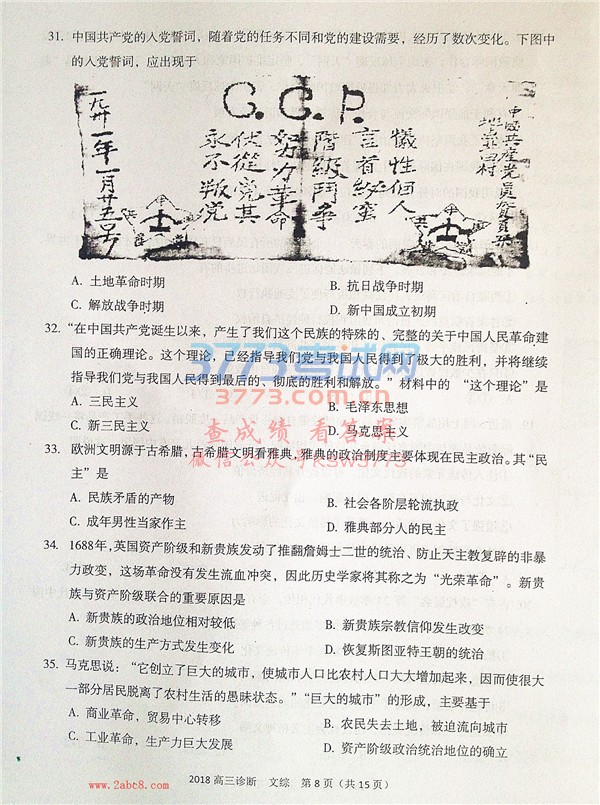 31. 中国共产党的入党誓词，随着党的任务不同和党的建设需要，经历了数次变化。下图中
的入党誓词，应出现于
C.C.P.
牺牲個人
言首秘蜜
階級鬥争
努力革命
伏從党其
永不叛党
一九卅一年一月廿五号
A. 土地革命时期 B. 抗日战争时期
C. 解放战争时期 D. 新中国成立初期
32. “在中国共产党诞生以来，产生了我们这个民族的特殊的、完整的关于中国人民革命建
国的正确理论。这个理论，已经指导我们党与我国人民得到了极大的胜利，并将继续
指导我们党与我国人民得到最后的、彻底的胜利和解放。”材料中的 “这个理论”是
A. 三民主义 B. 毛泽东思想
C. 新三民主义 D. 马克思主义
3773考试网
3773.com.cn
查成绩 看答案
微信公众号KSW3773
33. 欧洲文明源于古希腊，古希腊文明看雅典，雅典的政治制度主要体现在民主政治。其“民
主”是
A. 民族矛盾的产物 B. 社会各阶层轮流执政
C. 成年男性当家作主 D. 雅典部分人的民主
34. 1688年，英国资产阶级和新贵族发动了推翻詹姆士二世的统治、防止天主教复辟的非暴
力政变，这场革命没有发生流血冲突，因此历史学家将其称之为 “光荣革命” 。新贵
族与资产阶级联合的重要原因是
A. 新贵族的政治地位相对较低 B. 新贵族宗教信仰发生改变
C. 新贵族的生产方式发生变化 D. 恢复斯图亚特王朝的统治
35. 马克思说：“它创立了巨大的城市，使城市人口比农村人口大大增加起来，因而使很大
一部分居民脱离了农村生活的愚昧状态。” “巨大的城市”的形成，主要基于
A. 商业革命，贸易中心转移 B. 农民失去土地，被迫流向城市
C. 工业革命，生产力巨大发展 D. 资产阶级政治统治地位的确立
2018 高三诊断 文综 第 8 页（共 15 页）
www.2abc8.com